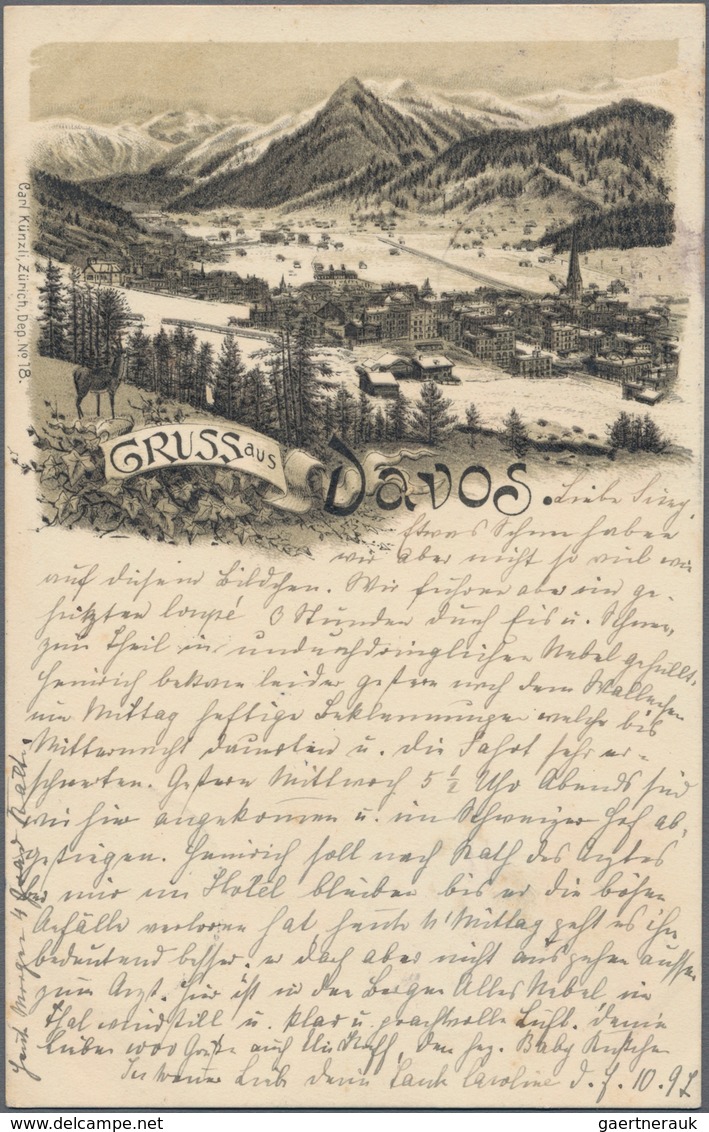 Carl Künzli, Zürich, Dep. No 18.
GRUSS aus Davos.
Liebe
Etwas Schnee haben
wir aber nicht so viel wie
auf diesem Bildchen. Wir fuhren aber im ge-
heizten Coupé 3 Stunden durch Eis u. Schnee,
zum Theil in undurchdringlichen Nebel gehüllt.
Heinrich bekam leider gestern nach dem
um Mittag heftige Beklemmungen welche bis
Mitternacht dauerten u. die Fahrt sehr er-
schwerten. Gestern Mittwoch 5 1/2 Uhr Abends sind
wir hier angekommen u. im Schweizer Hof ab-
gestiegen. Heinrich soll nach Rath des Arztes
bei mir im Hotel bleiben bis er die bösen
Anfälle verloren hat heute Mittag geht es ihm
bedeutend besser. er darf aber nicht ausgehen ausser
zum Arzt. Hier ist in den Bergen Alles Nebel, im
Thal windstill u. klar u. prachtvolle Luft. Deine
Lieben 1000 Grüße auch
In treuer Liebe deine Tante Caroline d. 7. 10. 97
Heut Morgen 4 Grad Kälte
gaertnerauk